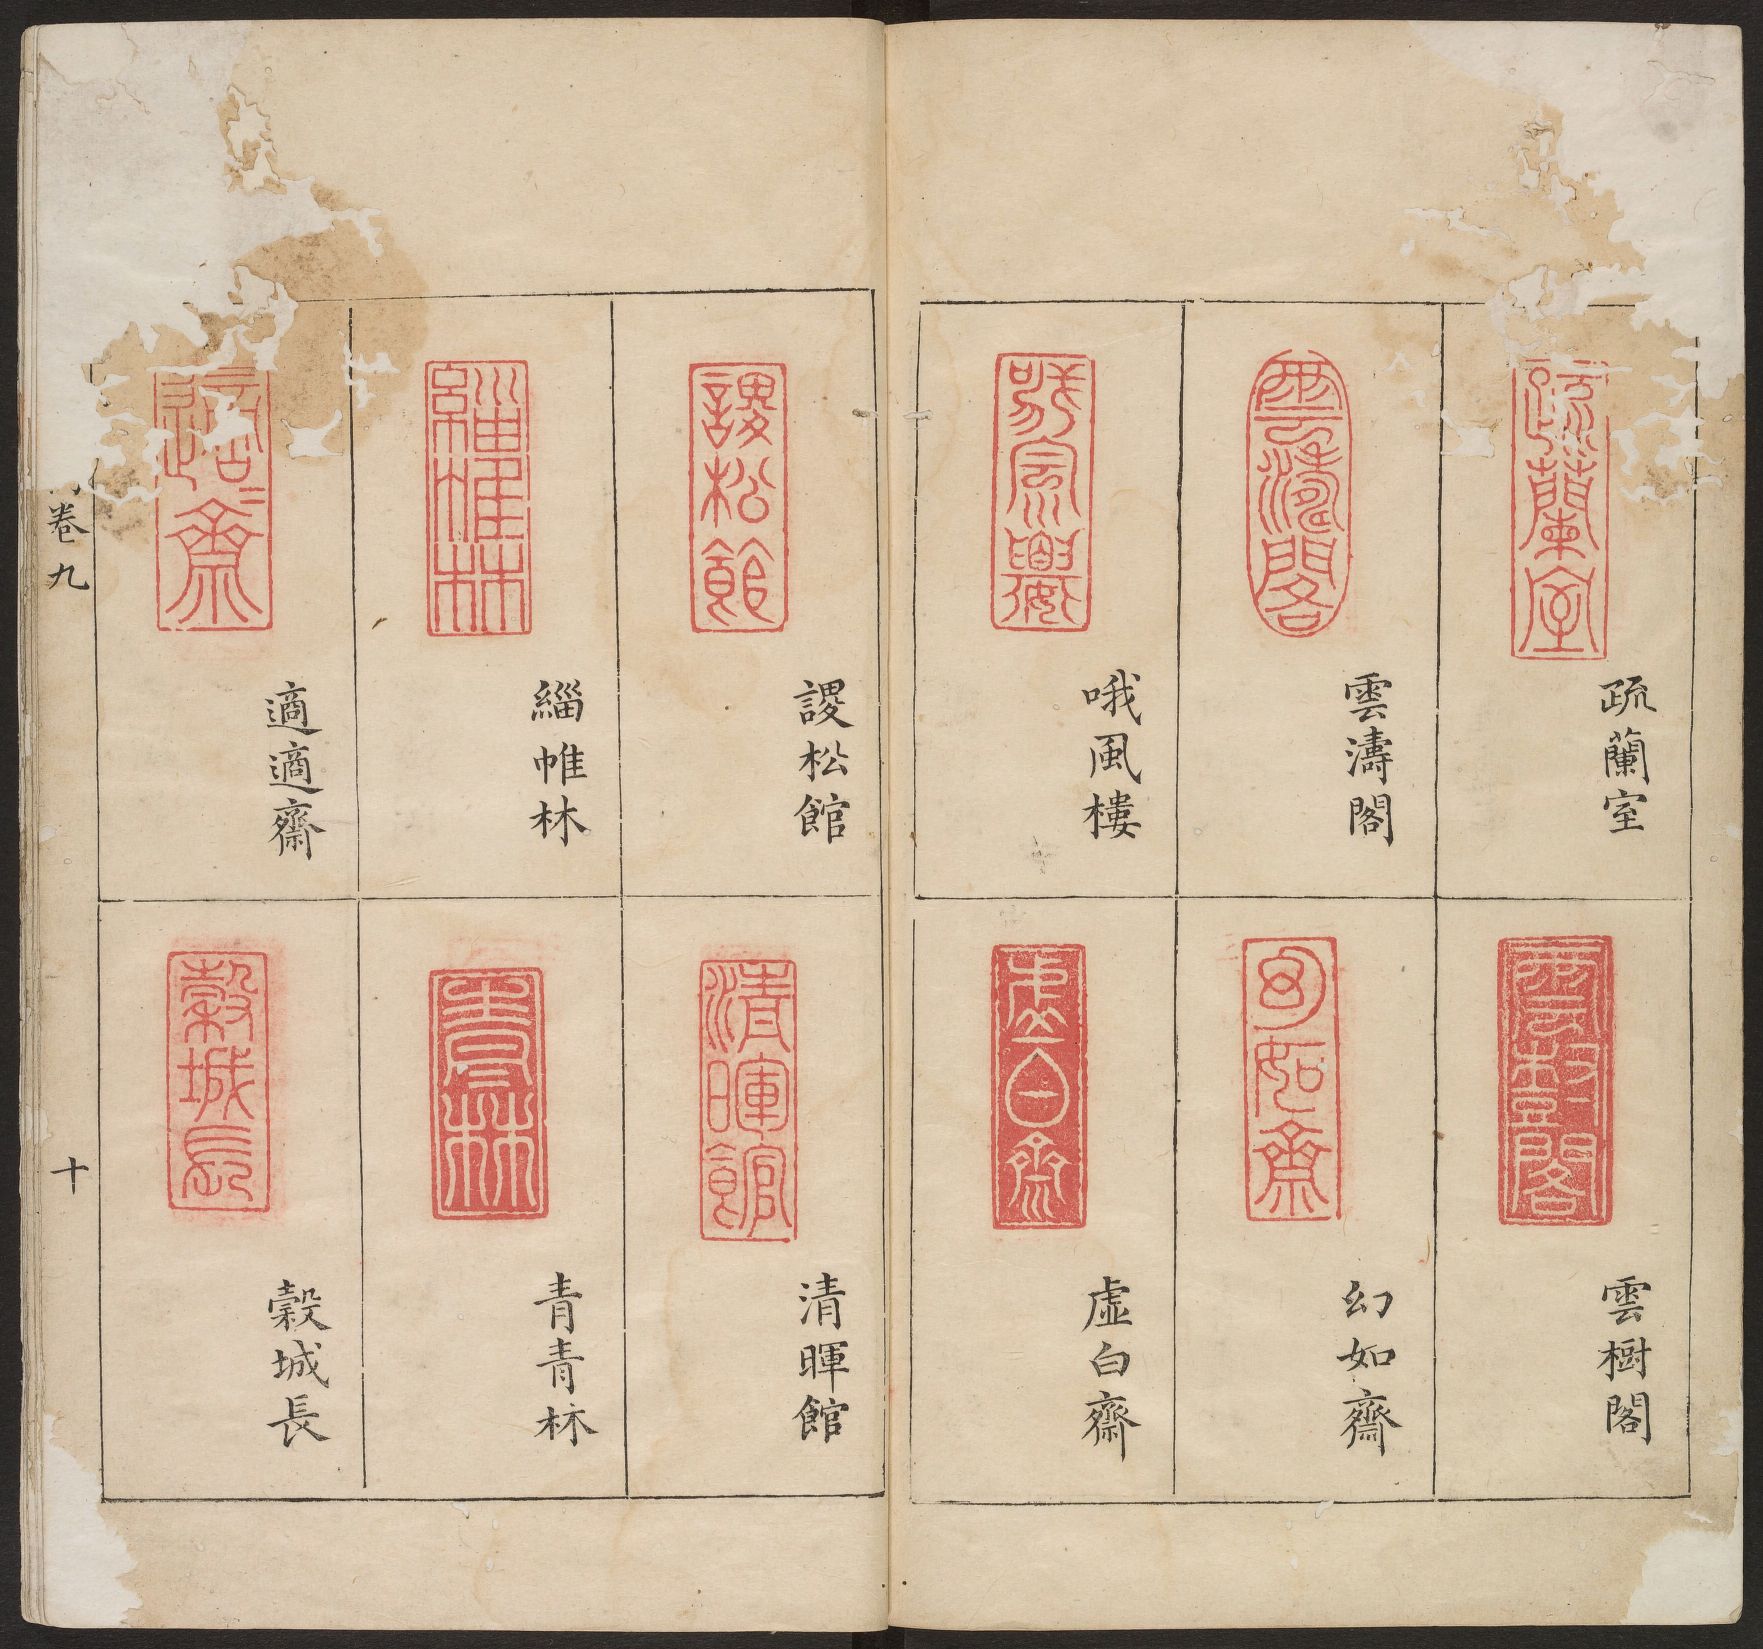 疏蘭室
雲濤閣
哦風樓
雲樹閣
幻如齋
虛白齋
謖松館
緇帷林
適適齋
清暉館
青青林
穀城長
卷九
十